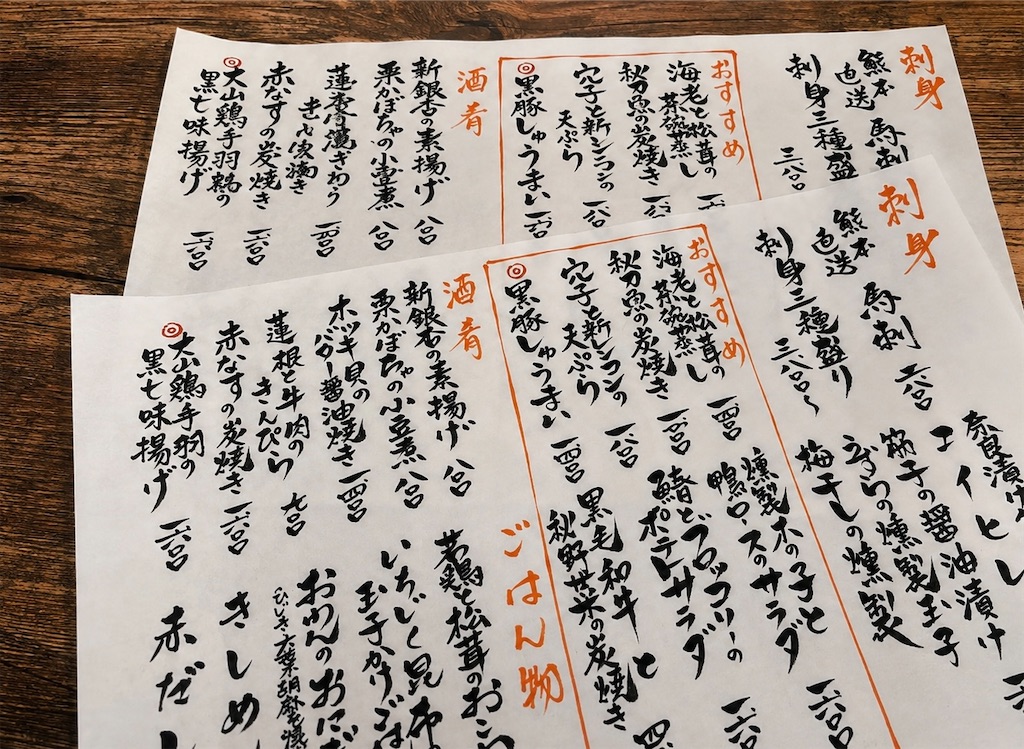 刺身
熊本
直送
馬刺
刺身三種盛
おすすめ
海老と松茸の
茶碗蒸し
秋刀魚の炭焼き
穴子と新レンコンの
天ぷら 一八〇〇
黒豚しゅうまい 一四〇〇
酒肴
新銀杏の素揚げ 八〇〇
栗かぼちゃの小豆煮 八〇〇
赤なすの炭焼き 一六〇〇
大山鶏手羽
黒七味揚げ 一六〇〇
刺身
熊本
直送
馬刺 二八〇〇
刺身三種盛り 三八〇〇〜
おすすめ
海老と松茸の
茶碗蒸し 一四〇〇
秋刀魚の炭焼き 一四〇〇
穴子と新レンコンの
天ぷら 一八〇〇
黒豚しゅうまい 一四〇〇
酒肴
新銀杏の素揚げ 八〇〇
栗かぼちゃの小豆煮 八〇〇
ホッキ貝の
バター醤油焼き 一四〇〇
蓮根と牛肉の
きんぴら 九〇〇
赤なすの炭焼き 一六〇〇
大山鶏手羽の
黒七味揚げ 一六〇〇
奈良漬け
エイヒレ
筋子の醤油漬け
うずらの燻製玉子
梅干しの燻製
燻製木の子と
鴨ロースのサラダ 一六〇〇
鯖とブロッコリーの
ポテトサラダ
黒毛和牛と
秋野菜の炭焼き
ごはん物
若鶏と松茸のおこ
いちじく昆布
玉子かけごは
おめんのおにぎ
きしめ
赤だし